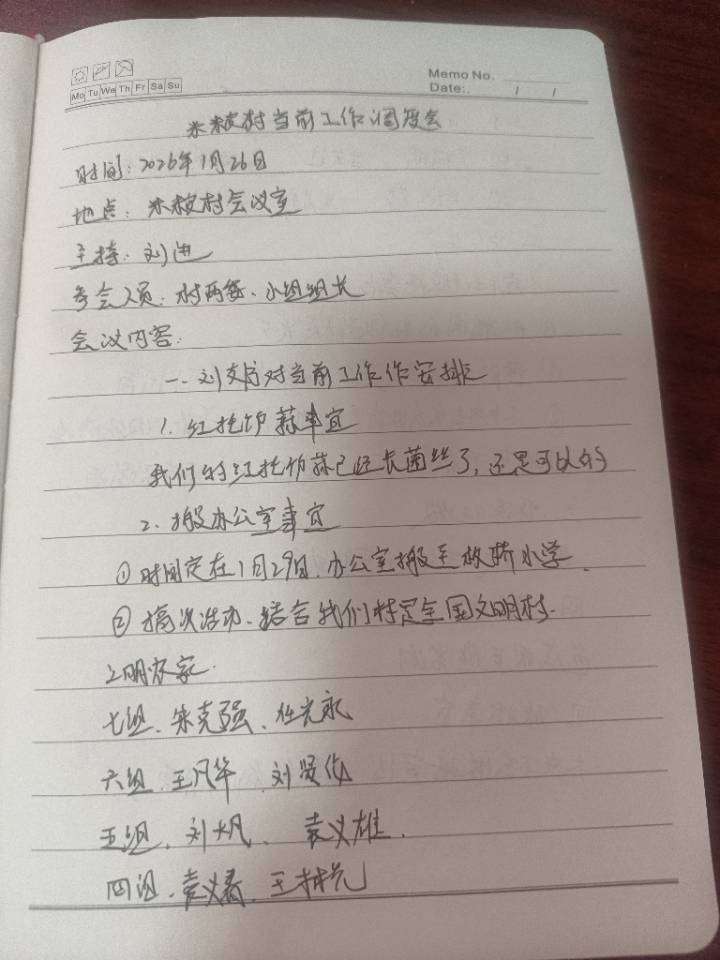 Mo Tu We Th Fr Sa Su
Memo No.
Date: / /
米桉村当前工作调度会
时间:2026年1月26日
地点:米桉村会议室
主持:刘进
参会人员:村两委、小组组长
会议内容:
一、刘支书对当前工作作安排
1、红托竹荪事宜
我们的红托竹荪已经长菌丝了,还是可以的
2、搬办公室事宜
①时间定在1月29日、办公室搬至板桥小学、
②搞次活动、结合我们村是全国文明村、
文明农家、
七组、朱克强、任光永
六组、王凡华、刘贤伦
五组、刘大凡、袁义雄、
四组、袁义春、王林元